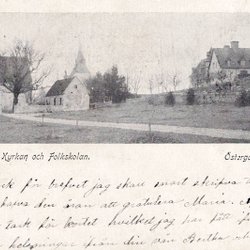 Kyrkan och Folkskolan.
Österg
ck för brefvet jag skall snart skrifva
hafva den äran att gratulera Maria. M
tack för kortet hvilket jag har fått
helsningar från din vän Bertha